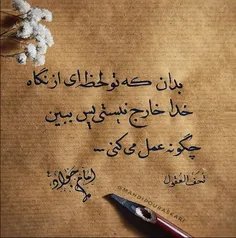 بدان که تو لحظه‌ای از نگاه
خدا خارج نیستی پس ببین
چگونه عمل می‌کنی ...
تحف العقول
امام جواد
@MAHDIPOURASKARI